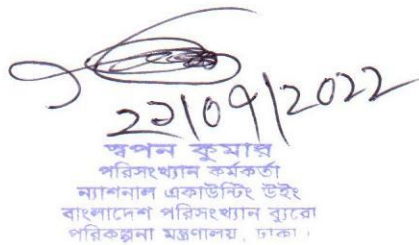 22/09/2022
স্বপন কুমার
পরিসংখ্যান কর্মকর্তা
ন্যাশনাল একাউন্টিং উইং
বাংলাদেশ পরিসংখ্যান ব্যুরো
পরিকল্পনা মন্ত্রণালয়, ঢাকা।